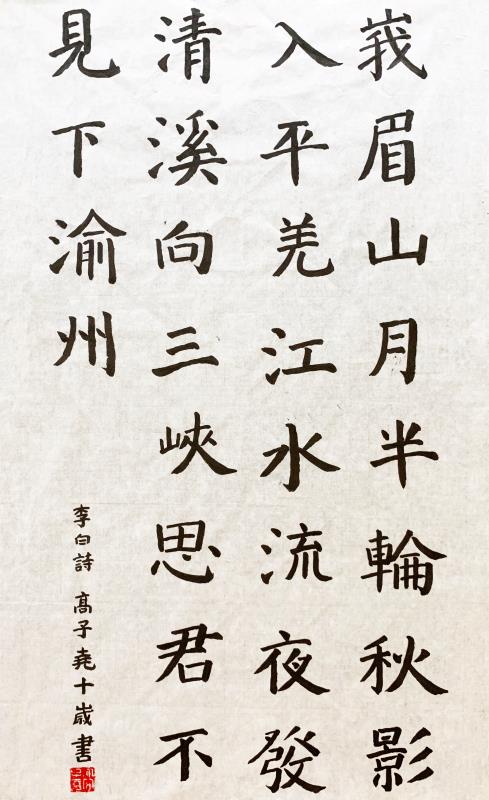 峩眉山月半輪秋影
入平羌江水流夜發
清溪向三峽思君不
見下渝州
李白詩 高子堯十歲書